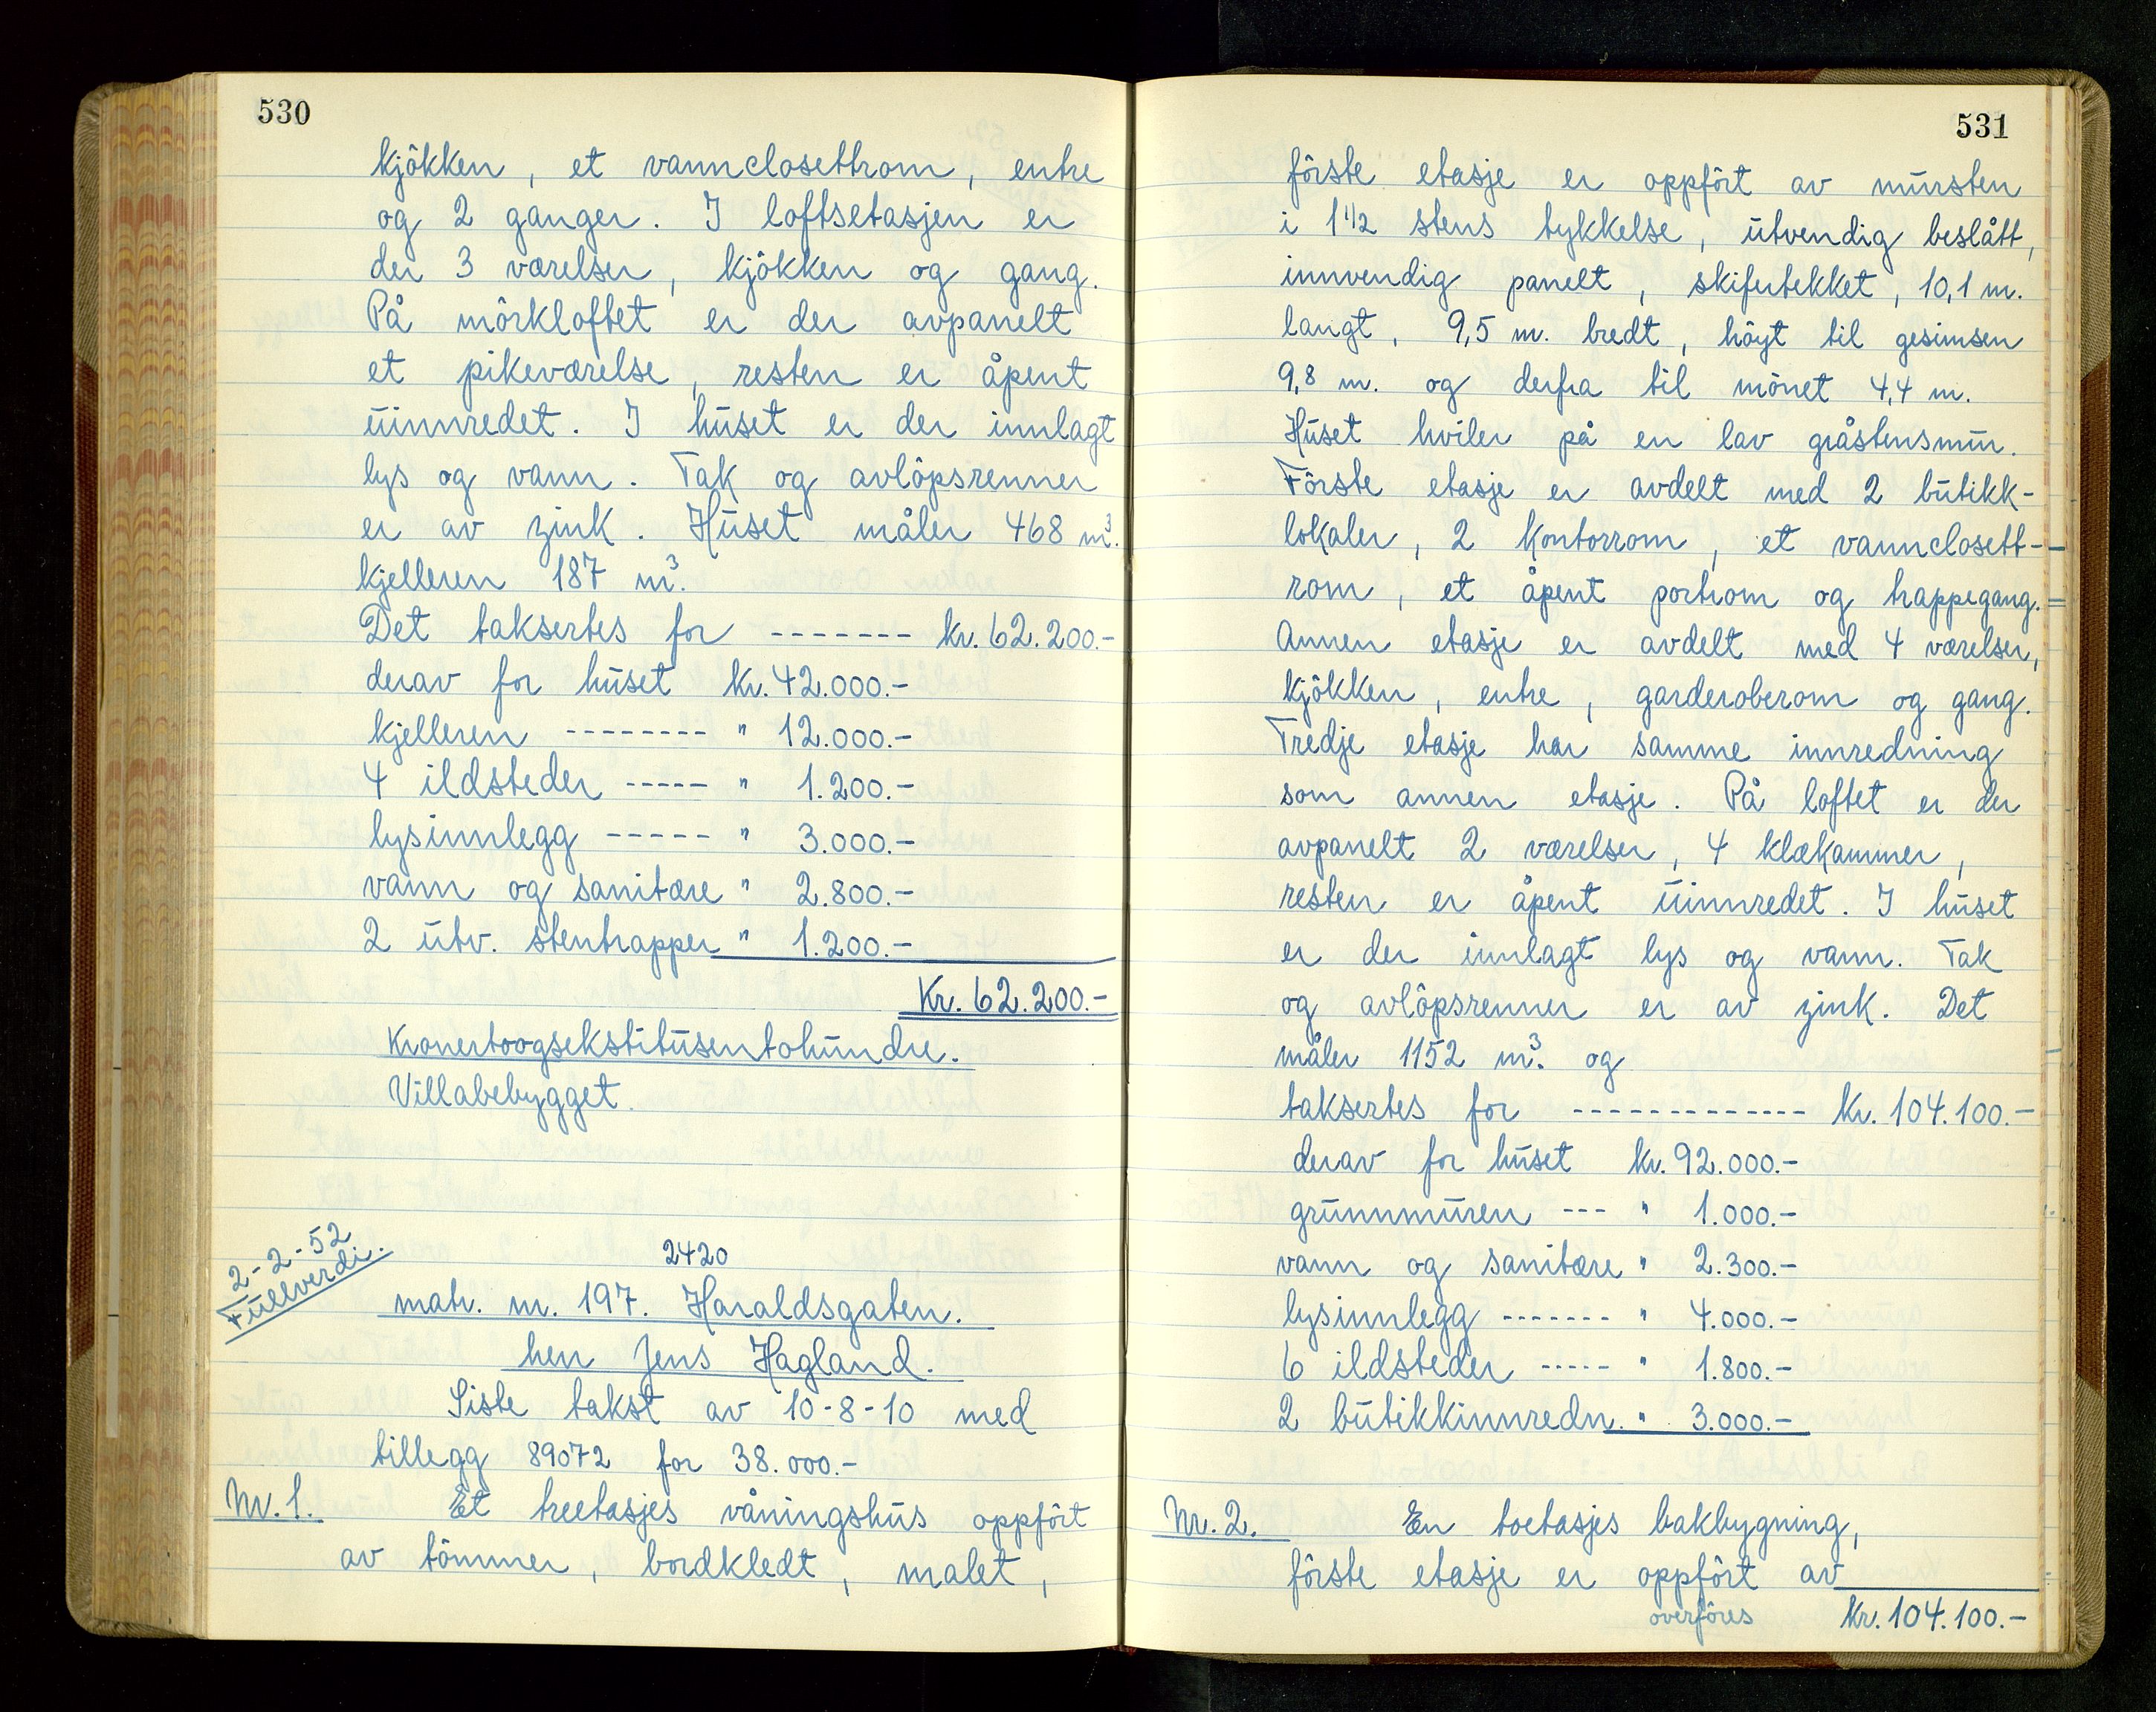 530
kjökken, et vannclosettrom, entre
og 2 ganger. I loftsetasjen er
der 3 værelser, kjökken og gang.
På mörkloftet er der avpanelt
et pikeværelse, resten er åpent
uinnredet. I huset er der innlagt
lys og vann. Tak og avlöpsrenner
er av zink. Huset måler 468 m³.
kjelleren 187 m³.
Det taksertes for ------- kr. 62.200.-
derav for huset kr. 42.000.-
kjelleren -------- " 12.000.-
4 ildsteder ----- " 1.200.-
lysinnlegg ----- " 3.000.-
vann og sanitære " 2.800.-
2 utv. stentrapper " 1.200.-
Kr. 62.200.-
Kronertoogsekstitusentohundre.
Villabebygget.
2-2-52
Fullverdi.
2420
matr. nr. 197. Haraldsgaten.
herr Jens Hagland.
Siste takst av 10-8-10 med
tillegg 89072 for 38.000.-
Nr. 1. Et treetasjes våningshus oppfört
av tömmer, bordkledt, malet,
531
förste etasje er oppfört av mursten
i 1 1/2 stens tykkelse, utvendig beslått,
innvendig panelt, skifertekket, 10,1 m.
langt, 9,5 m. bredt, höyt til gesimsen
9,8 m. og derfra til mönet 4,4 m.
Huset hviler på en lav gråstensmur.
Förste etasje er avdelt med 2 butikk-
lokaler, 2 kontorrom, et vannclosett-
rom, et åpent portrom og trappegang.
Annen etasje er avdelt med 4 værelser,
kjökken, entre, garderoberom og gang.
Tredje etasje har samme innredning
som annen etasje. På loftet er der
avpanelt 2 værelser, 4 klækammer,
resten er åpent uinnredet. I huset
er der innlagt lys og vann. Tak
og avlöpsrenner er av zink. Det
måler 1152 m³. og
taksertes for ------------- Kr. 104.100.-
derav for huset kr. 92.000.-
grunnmuren --- " 1.000.-
vann og sanitære " 2.300.-
lysinnlegg ------- " 4.000.-
6 ildsteder ----- " 1.800.-
2 butikkinnredn. " 3.000.-
Nr. 2. En toetasjes bakbygning,
förste etasje er oppfört av
overföres Kr. 104.100.-